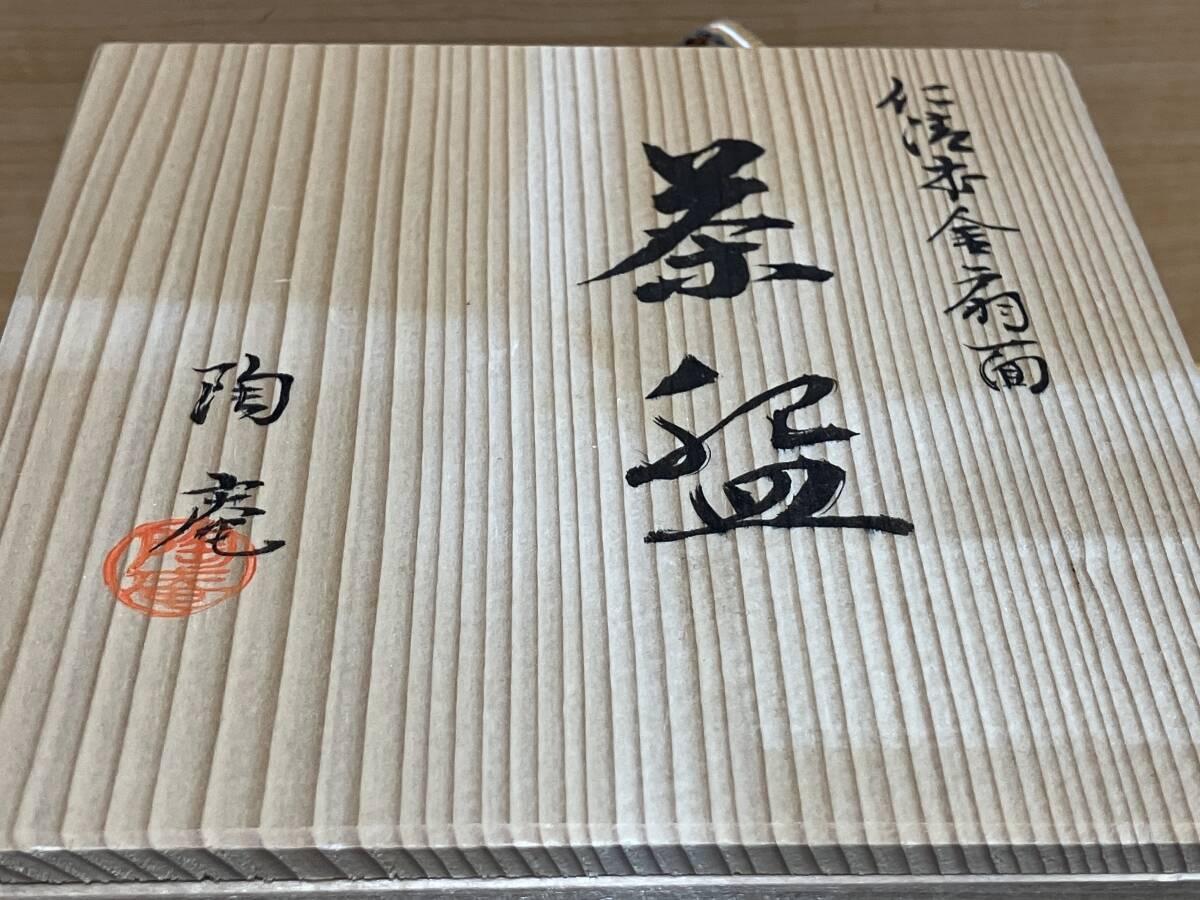 仁清赤金扇面
茶盌
陶庵